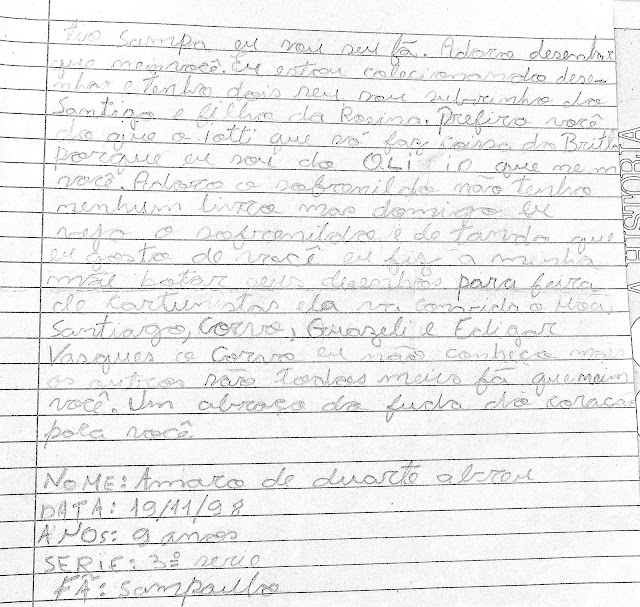 tio Sampa eu sou seu fã. Adoro desenhar
que nem você. Eu estou colecionando dese-
nhos e tenho dois seu sou subrinho do
Santigo e filho da Rosina. Prefiro você
do que o Iotti que só faz coisa do
porque eu sai do que nem
você. Adoro o sofrenildo não tenho
nenhum livro mas domigo eu
vejo o sofrenildo e de tando que
eu gosto de você eu fiz a minha
mãe botar seus desenhos para feira
de cartunistas ela va convida o
Santiago, Corvo, Guazeli e Edigar
Vasques o Corvo eu não conheço mais
os outros são todos meus fã que nem
você. Um abraço do fudo do coracao
pola você
NOME: Amaro de duarte abreu
DATA: 19/11/98
ANOS: 9 anos
SERIE: 3ª serie
FÃ: Sampaulho
A HISTÓRIA